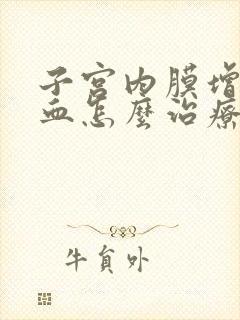 子宫内膜增
血怎麼治療
牛貟外